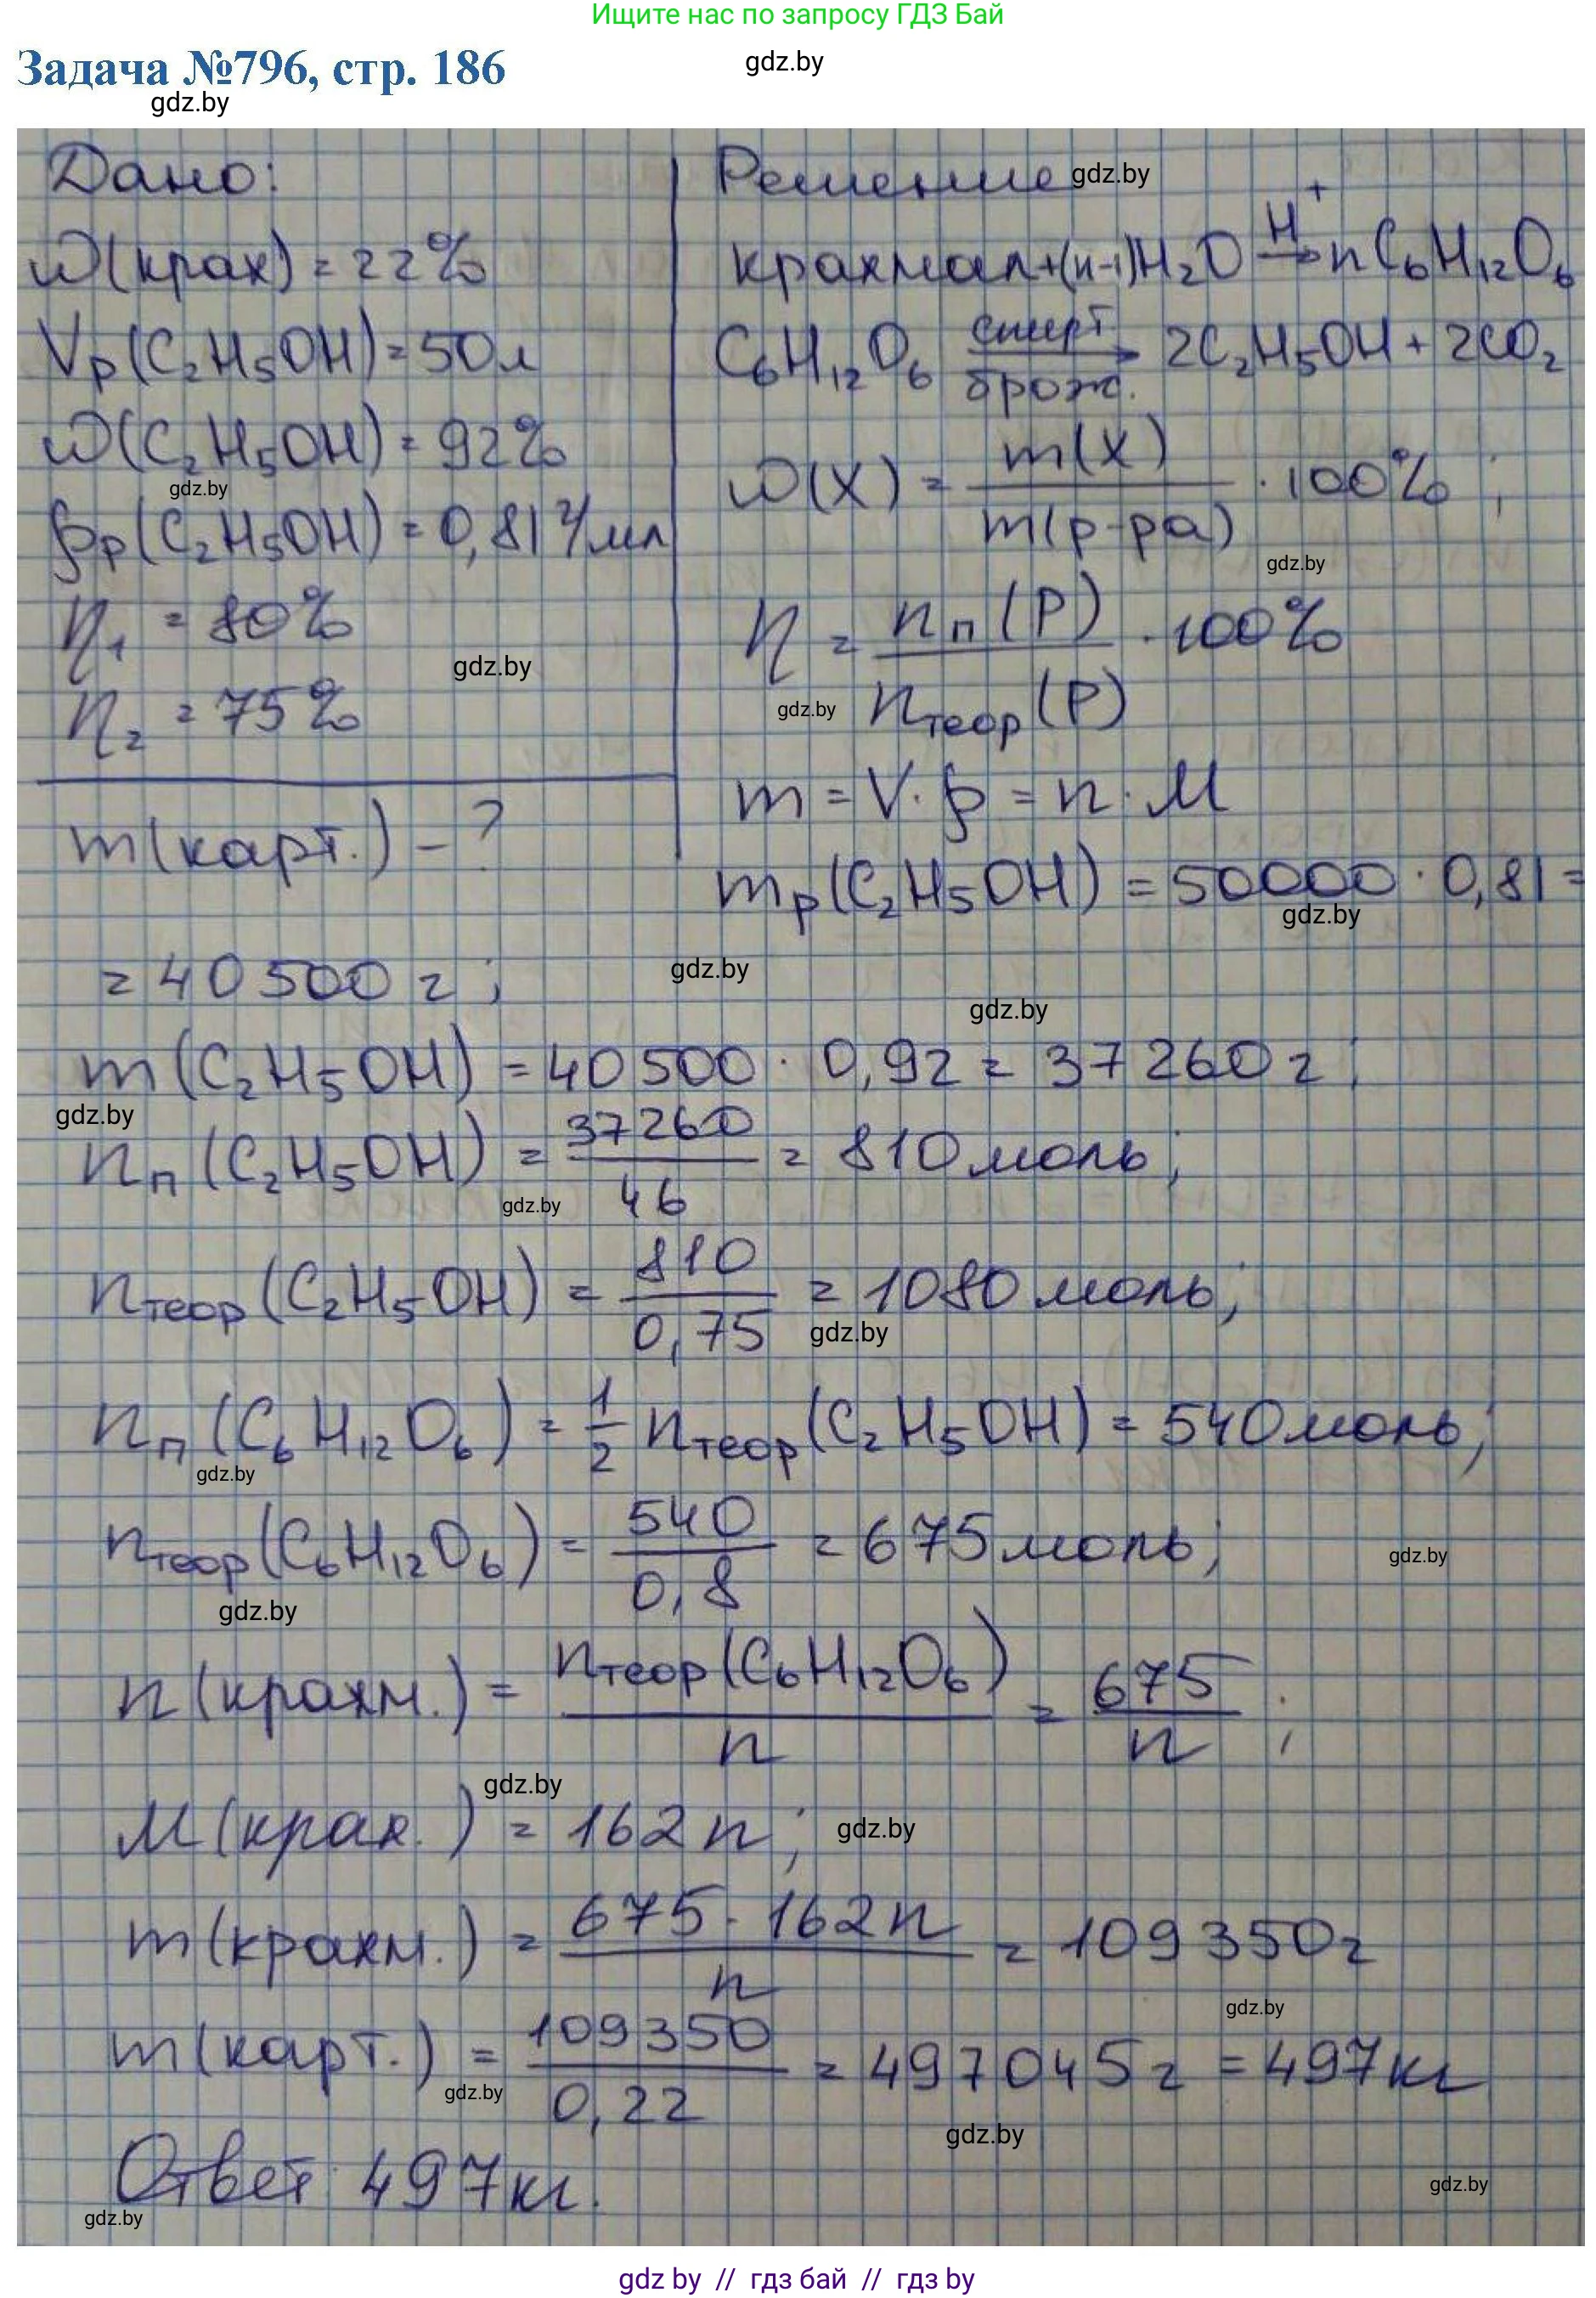 Ищите нас по запросу ГДЗ Бай
Задача №796, стр. 186
gdz.by
gdz.by
Дано:
ω(крах) = 22%
Vр(C₂H₅OH) = 50л
ω(C₂H₅OH) = 92%
gdz.by
ρр(C₂H₅OH) = 0,81 г/мл
η₁ = 80%
gdz.by
η₂ = 75%
m(карт.) - ?
Решение
gdz.by
крахмал+(n-1)H₂O –H⁺→ nC₆H₁₂O₆
C₆H₁₂O₆ –спирт. брож.→ 2C₂H₅OH + 2CO₂
ω(X) = m(X) / m(р-ра) · 100% ;
gdz.by
η = nп(P) / nтеор(P) · 100%
gdz.by
m = V·ρ = n·M
mр(C₂H₅OH) = 50000 · 0,81 =
gdz.by
= 40500 г ;
gdz.by
gdz.by
m(C₂H₅OH) = 40500 · 0,92 = 37260 г ;
gdz.by
nп(C₂H₅OH) = 37260 / 46 = 810 моль ;
gdz.by
nтеор(C₂H₅OH) = 810 / 0,75 = 1080 моль ;
gdz.by
nп(C₆H₁₂O₆) = 1/2 nтеор(C₂H₅OH) = 540 моль ;
gdz.by
nтеор(C₆H₁₂O₆) = 540 / 0,8 = 675 моль ;
gdz.by
gdz.by
n(крахм.) = nтеор(C₆H₁₂O₆) / n = 675 / n ;
gdz.by
M(крах.) = 162 n ;
gdz.by
m(крахм.) = 675 · 162n / n = 109350 г
gdz.by
m(карт.) = 109350 / 0,22 = 497045 г = 497 кг
gdz.by
gdz.by
Ответ: 497 кг.
gdz.by
gdz.by
gdz by // гдз бай // гдз by